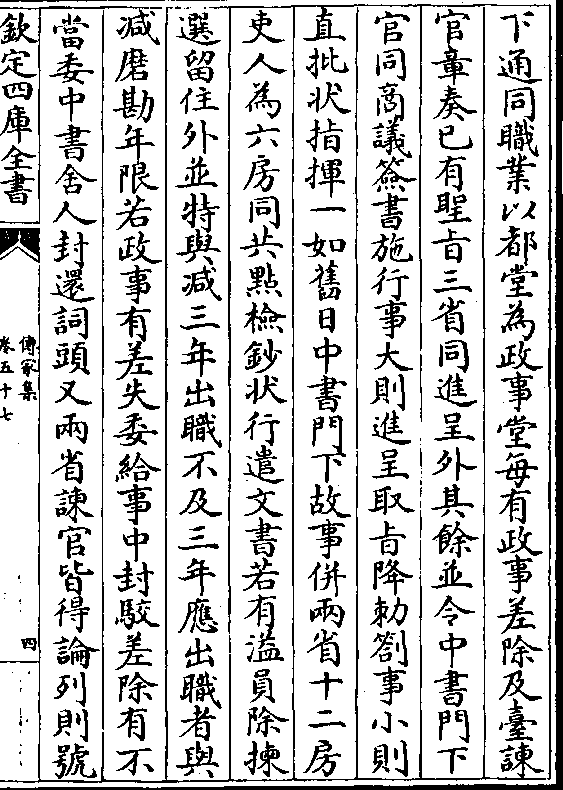 下通同職業以都堂為政事堂每有政事差除及臺諫
官章奏已有聖旨三省同進呈外其餘並令中書門下
官同商議簽書施行事大則進呈取旨降勅劄事小則
直批狀指揮一如舊日中書門下故事併兩省十二房
吏人為六房同共點檢鈔狀行遣文書若有溢員除揀
選留住外並特與减三年出職不及三年應出職者與
减磨勘年限若政事有差失委給事中封駮差除有不
當委中書舍人封還詞頭又兩省諫官皆得論列則號
欽定四庫全書
傳家集
卷五十七
四